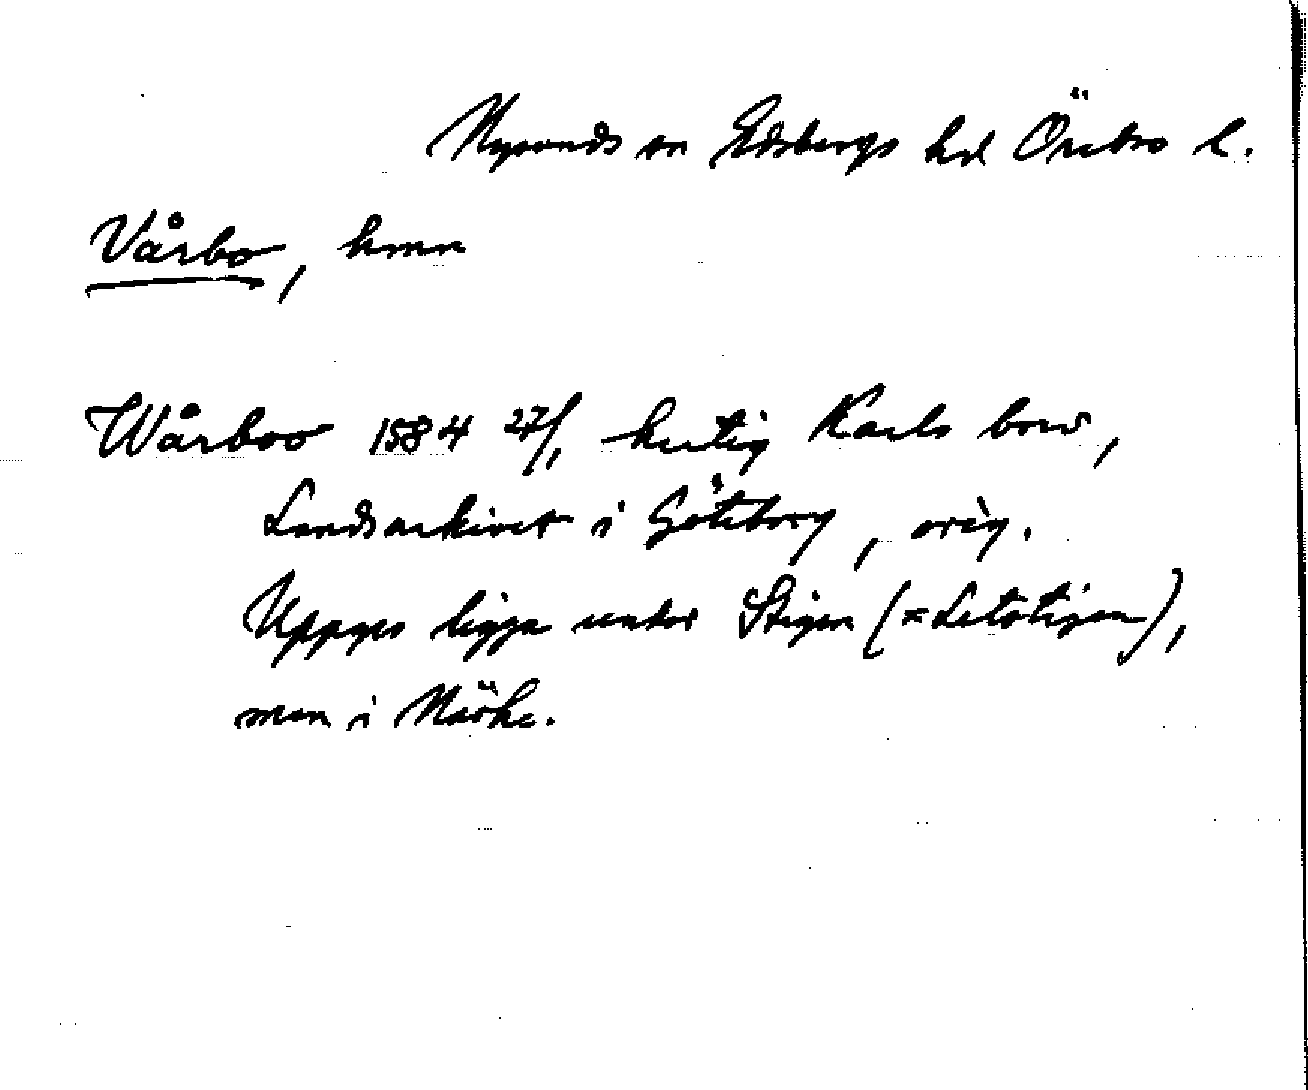 Nysunds sn Edsbergs hd Örebro l.
Vårbo, hmn
Wårboo 1584 27/1 hertig Karls brev,
Landsarkivet i Göteborg, orig.
Uppges ligga under Stigen (=Letstigen),
men i Närke.